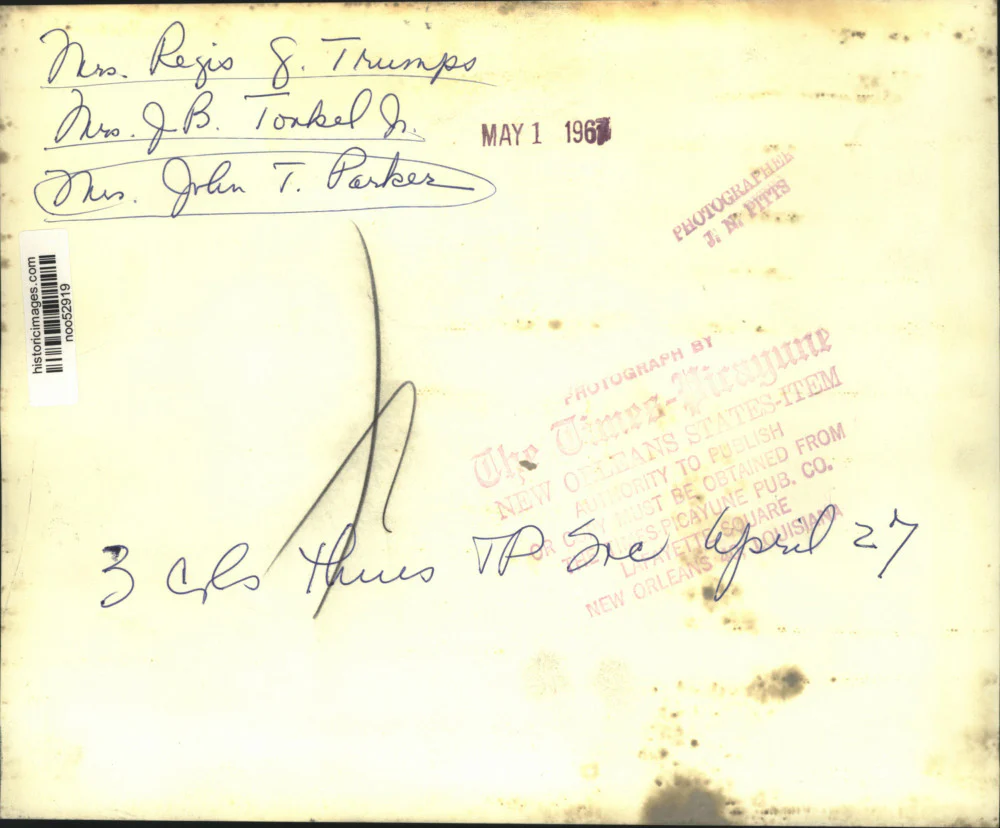 Mrs. Regis J. Trumps
Mrs. J. B. Tonkel Jr.
Mrs. John T. Parker
MAY 1 1967
PHOTOGRAPHER
J. N. PITTS
historicimages.com
noo52919
PHOTOGRAPH BY
The Times-Picayune
NEW ORLEANS STATES-ITEM
AUTHORITY TO PUBLISH
MUST BE OBTAINED FROM
PICAYUNE PUB. CO.
LAFAYETTE SQUARE
NEW ORLEANS LOUISIANA
3 cols Thurs TP Soc April 27